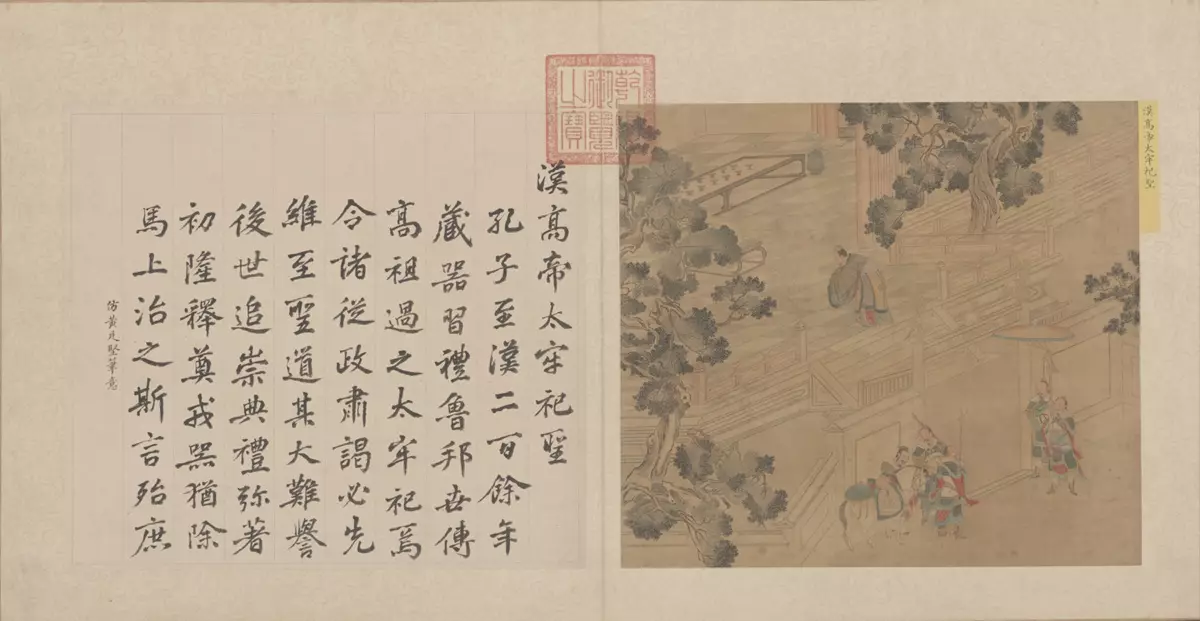 漢高帝太牢祀聖
乾隆御筆之寶
漢高帝太牢祀聖
孔子至漢二百餘年
藏器習禮魯邦世傳
高祖過之太牢祀焉
令諸從政肅謁必先
維至聖道其大難譽
後世追崇典禮弥著
初隆釋奠戎器猶除
馬上治之斯言殆庶
仿黃庭堅筆意